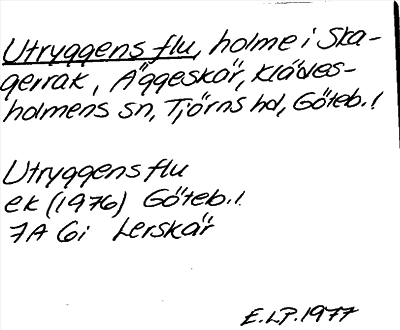 Utryggens flu, holme i Ska-
gerrak, Äggeskär, Klädes-
holmens sn, Tjörns hd, Göteb. l
Utryggens flu
ek (1976) Göteb. l.
7A 6i Lerskär
E.L.P. 1977